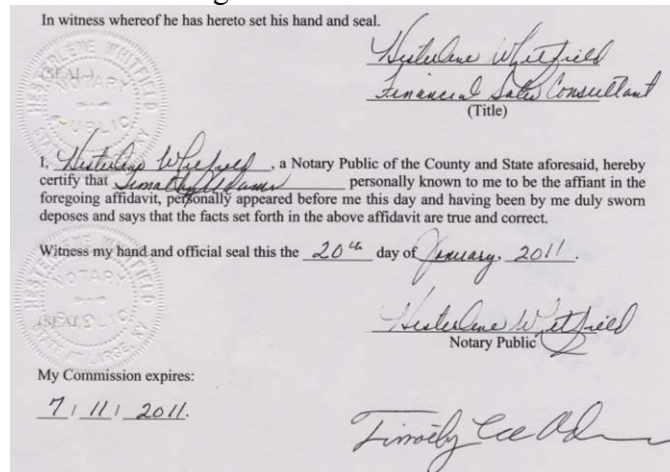 In witness whereof he has hereto set his hand and seal.
HESTERLENE WHITFIELD
NOTARY
PUBLIC
(SEAL)
Hesterlene Whitfield
Financial Sales Consultant
(Title)
I, Hesterlene Whitfield, a Notary Public of the County and State aforesaid, hereby
certify that Timothy Adams personally known to me to be the affiant in the
foregoing affidavit, personally appeared before me this day and having been by me duly sworn
deposes and says that the facts set forth in the above affidavit are true and correct.
Witness my hand and official seal this the 20th day of January, 2011.
NOTARY
PUBLIC
STATE AT LARGE, KY
(SEAL)
Hesterlene Whitfield
Notary Public
My Commission expires:
7/11/2011.
Timothy Lee